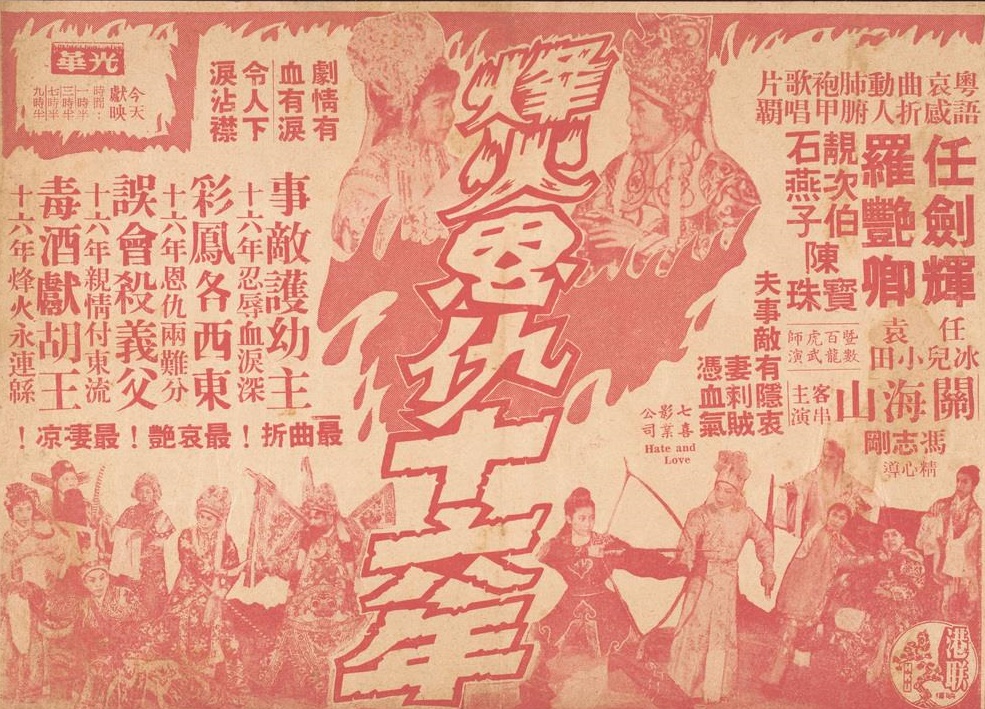 粵語
哀感
曲折
動人
肺腑
袍甲
歌唱
片霸
任劍輝
羅艷卿
靚次伯
石燕子
陳寶珠
任冰兒
袁小田
關海山
客串
主演
暨數百龍虎武師演
馮志剛
精心導
夫事敵有隱衷
妻刺賊憑血氣
七喜影業公司
Hate and Love
烽火恩仇十六年
劇情有血有淚
令人下淚沾襟
光華
今天獻映
時間：
一時半
三時半
七時半
九時半
事敵護幼主
十六年忍辱血淚深
彩鳳各西東
十六年恩仇兩難分
誤會殺義父
十六年親情付東流
毒酒獻胡王
十六年烽火永連緜
最曲折！最哀艷！最凄凉！
港联